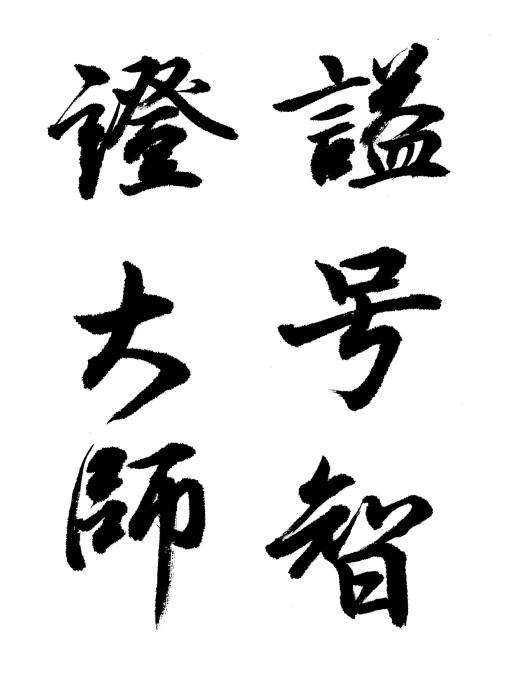 謚号智
證大師